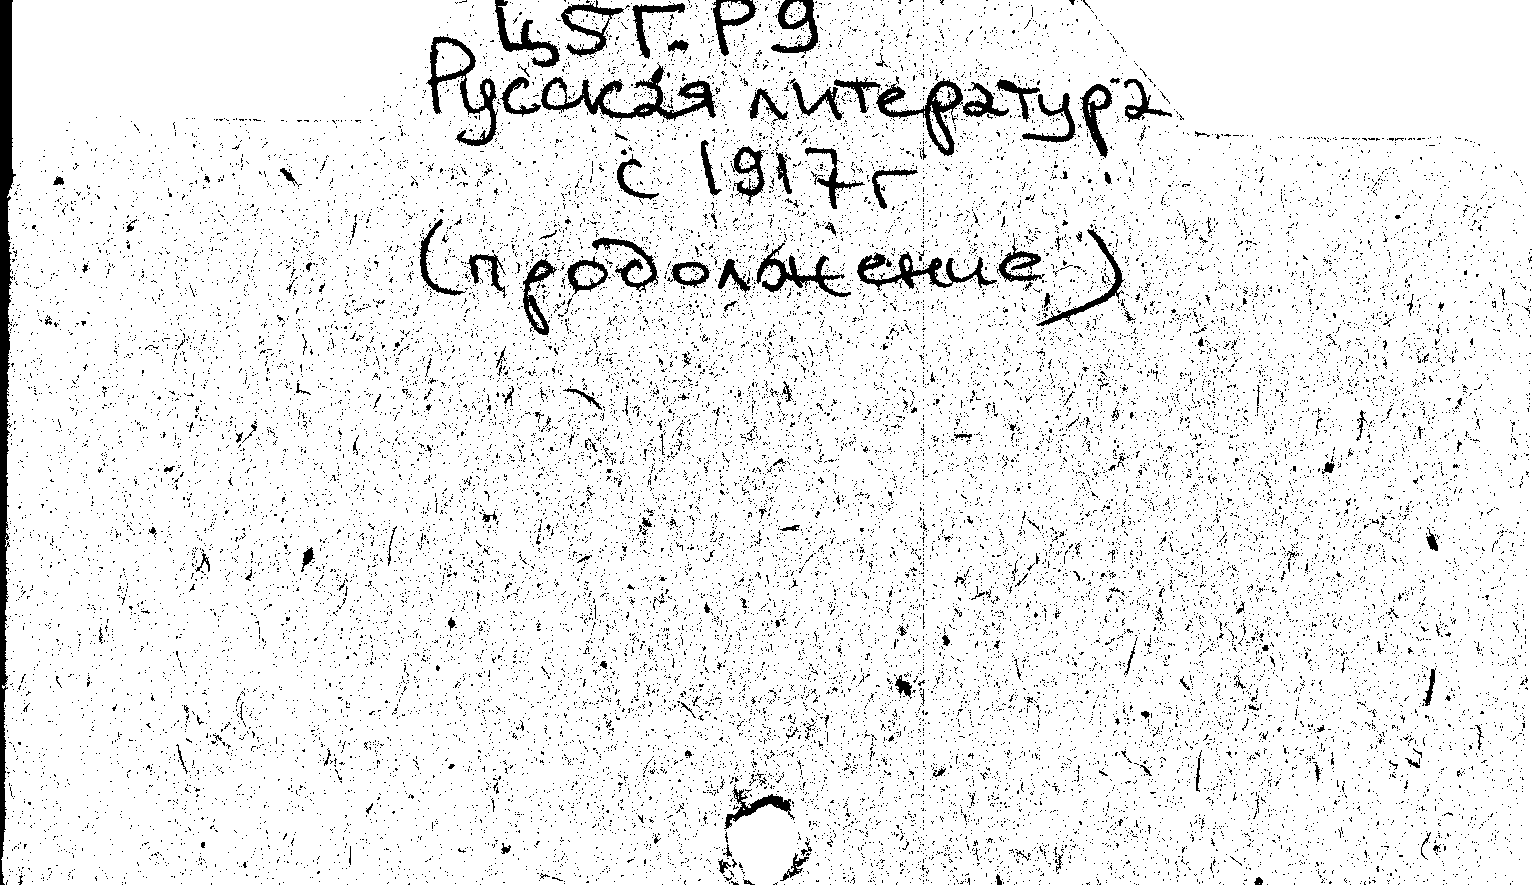 Ц5Г.Р9
Русская литература
с 1917г
(продолжение)